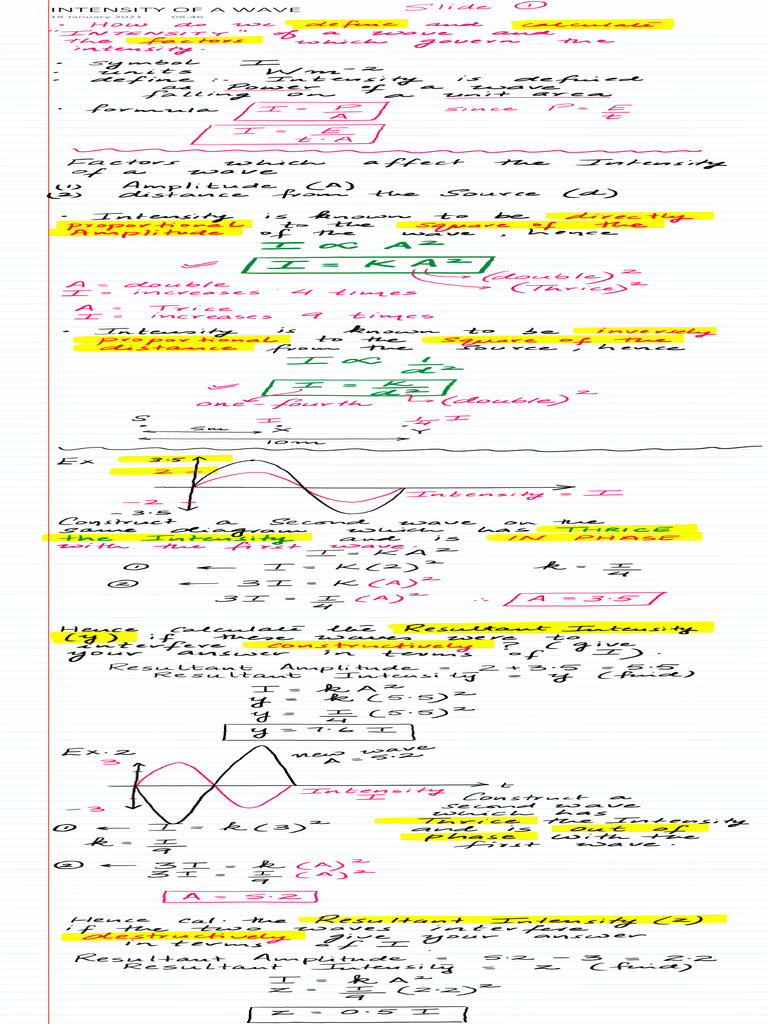 INTENSITY OF A WAVE
Slide ①
18 January 2021 08:46
· How do we define and calculate
"INTENSITY" of a wave and
the factors which govern the
intensity.
· symbol I
· units Wm⁻²
· define :- Intensity is defined
as Power of a wave
falling on a unit area
· formula I = P/A since P = E/t
I = E/t·A
Factors which affect the Intensity
of a wave
(1) Amplitude (A)
(2) distance from the Source (d)
· Intensity is known to be directly
proportional to the square of the
Amplitude of the wave, hence
I ∝ A²
✓ I = K A²
(double)²
A = double
I = increases 4 times
(Thrice)²
A = Trice
I = increases 9 times
· Intensity is known to be inversely
proportional to the square of the
distance from the source, hence
I ∝ 1/d²
✓ I = K/d²
one-fourth (double)²
S I 1/4 I
5m X Y
10m
Ex 3.5
2
-2 Intensity = I
-3.5
Construct a Second wave on the
same diagram which has THRICE
the Intensity and is IN PHASE
with the first wave.
I = KA²
① ← I = K(2)² k = I/4
② ← 3I = K(A)²
3I = I/4 (A)² ∴ A = 3.5
Hence calculate the Resultant Intensity
(y) if these waves were to
interfere constructively? (give
your answer in terms of I).
Resultant Amplitude = 2 + 3.5 = 5.5
Resultant Intensity = y (find)
I = kA²
y = k(5.5)²
y = I/4 (5.5)²
y = 7.6 I
Ex.2
new wave
A = 5.2
3
Intensity
I
t
-3
Construct a
second wave
which has
Thrice the Intensity
and is out of
phase with the
first wave.
① ← I = k(3)²
k = I/9
② ← 3I = k(A)²
3I = I/9 (A)²
A = 5.2
Hence cal. the Resultant Intensity (z)
if the two waves interfere
destructively give your answer
in terms of I
Resultant Amplitude = 5.2 - 3 = 2.2
Resultant Intensity = z (find)
I = kA²
z = I/9 (2.2)²
z = 0.5 I